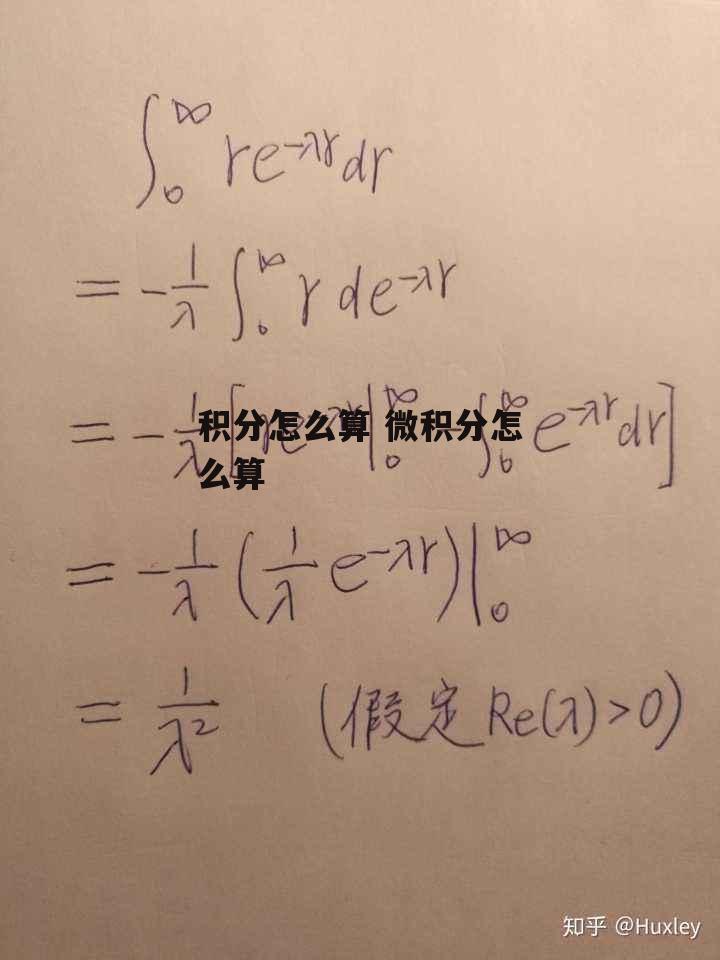 ∫₀^∞ re^{-λr}dr
= -1/λ ∫₀^∞ r de^{-λr}
= -1/λ [re^{-λr}|₀^∞ - ∫₀^∞ e^{-λr}dr]
积分怎么算 微积分怎
么算
= -1/λ (1/λ e^{-λr})|₀^∞
= 1/λ² (假定Re(λ)>0)
知乎 @Huxley